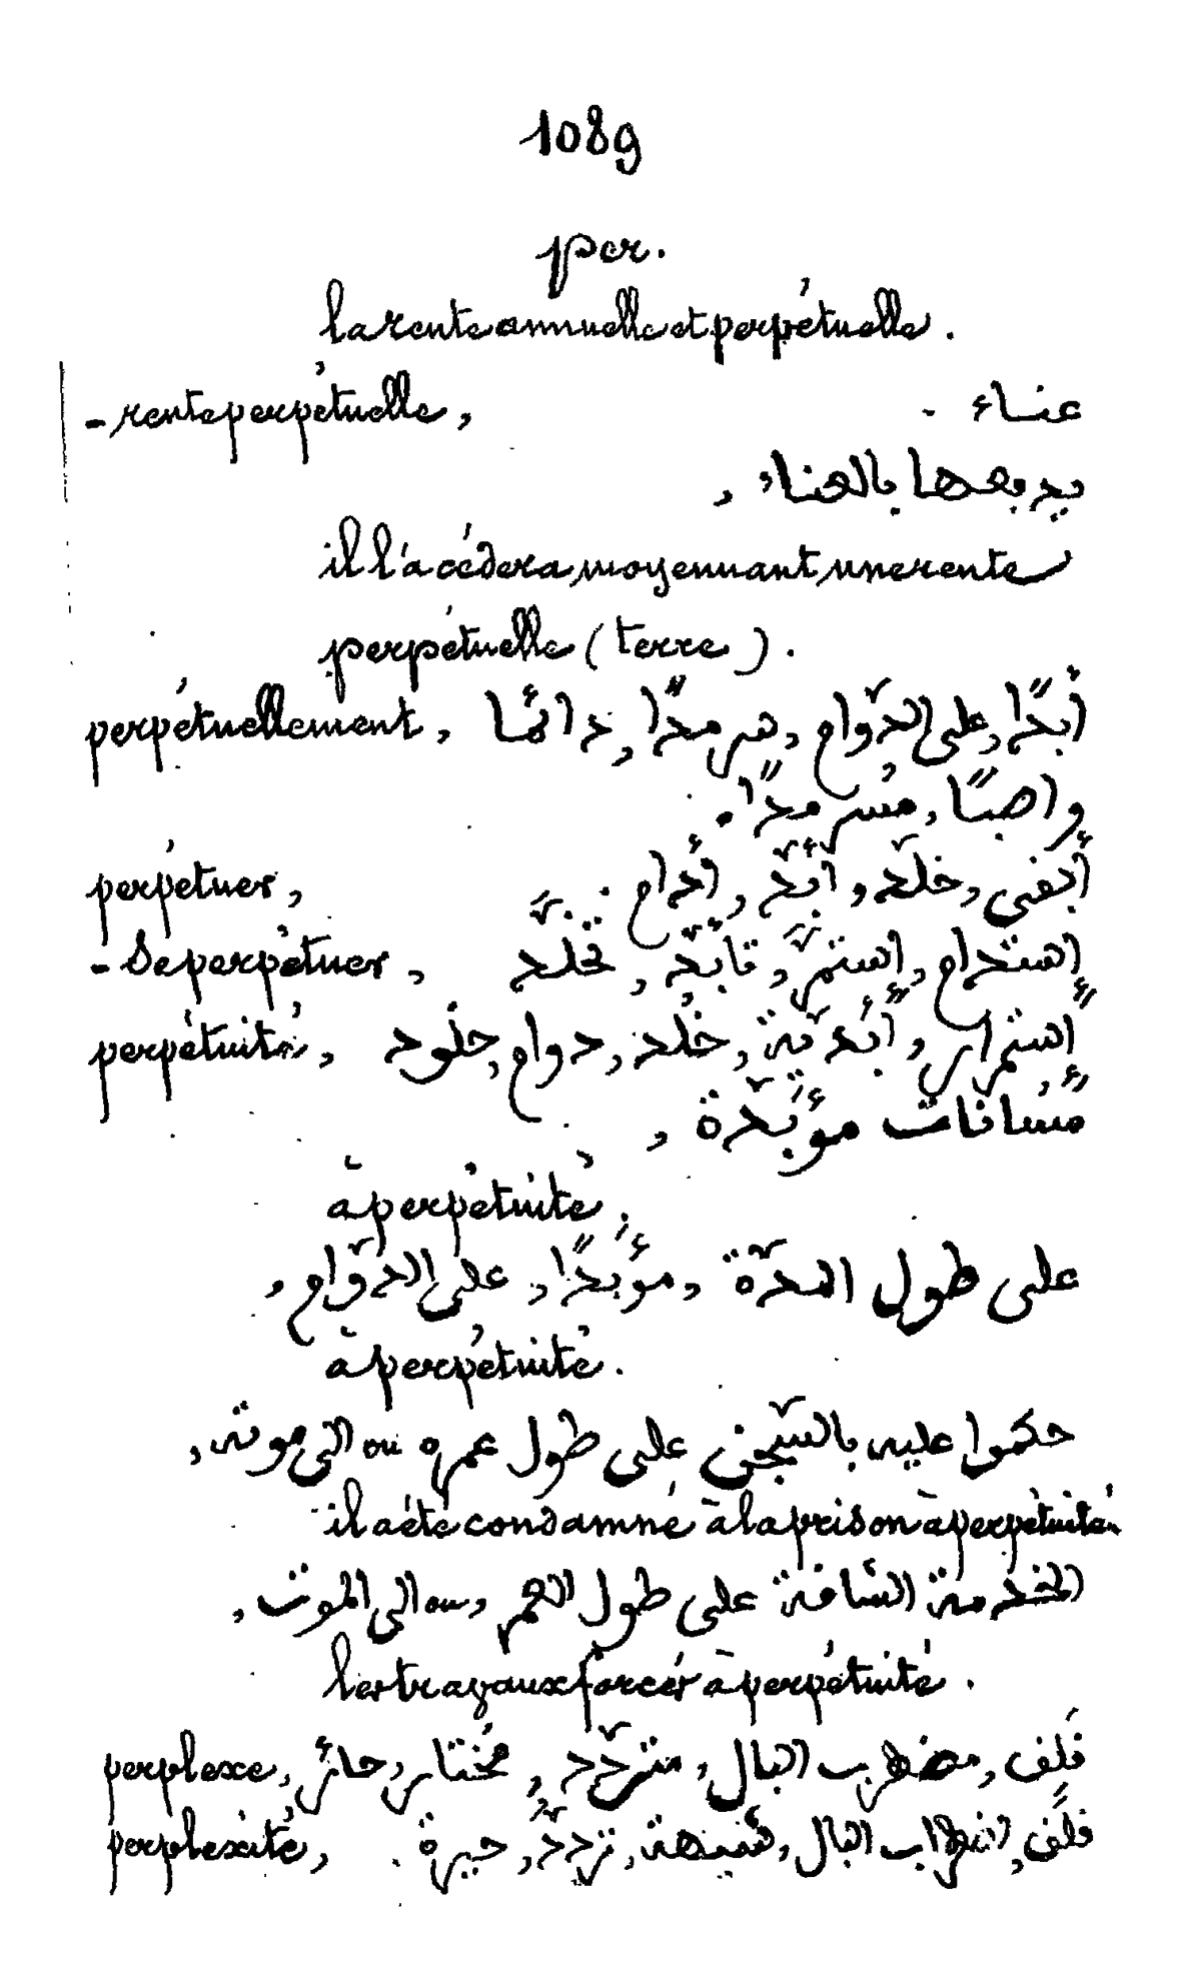 1089
per.
la rente annuelle et perpétuelle.
- rente perpétuelle, عناء .
يدبعها بالعناء,
il l'a cédera moyennant une rente
perpétuelle (terre).
perpétuellement, أبدًا, على الدّوام, سرمدًا, دائمًا
واصبًا, مُسرمدًا.
perpétuer, أبفى, خلّد, أبّد, أدام.
- se perpétuer, إستدام, إستمرّ, تأبّد, تخلّد
perpétuité, إستمرار, أبديّة, خُلد, دوام, خلود
مُسانات مؤبّدة,
à perpétuité.
على طول المدّة, مؤبدًا, على الدّوام,
à perpétuité.
حكموا عليه بالسّجن على طول عمره ou الى موته,
il a été condamné à la prison à perpétuité.
الخدمة الشافة على طول العمر, ou الى الموت,
les travaux forcés à perpétuité.
perplexe, فَلِف, مضطرب البال, متردّد, مُختار, حائر
perplexité, فلَف, اضطراب البال, تردّدُ, حيرة